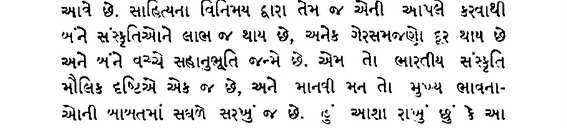 આવે છે. સાહિત્યના વિનિમય દ્વારા તેમ જ એની આપલે કરવાથી
બંને સંસ્કૃતિઓને લાભ જ થાય છે, અનેક ગેરસમજણો દૂર થાય છે
અને બંને વચ્ચે સહાનુભૂતિ જન્મે છે. એમ તો ભારતીય સંસ્કૃતિ
મૌલિક દૃષ્ટિએ એક જ છે, અને માનવી મન તો મુખ્ય ભાવના-
ઓની બાબતમાં સઘળે સરખું જ છે. હું આશા રાખું છું કે આ